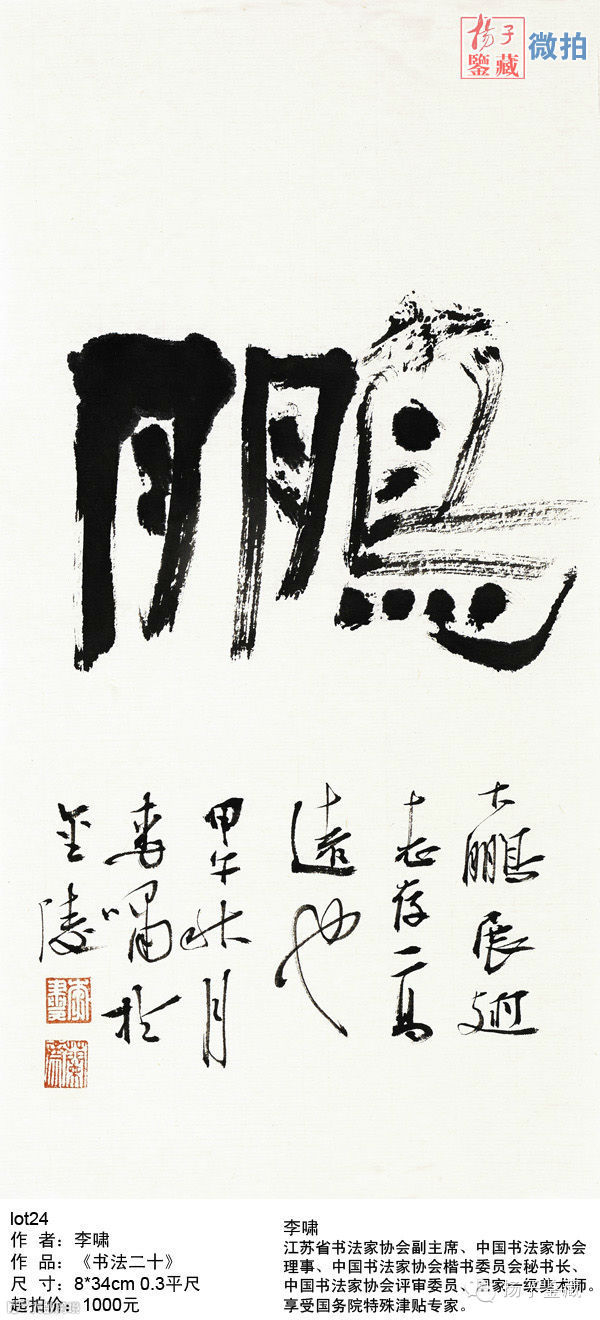 扬子
鑒藏
微拍
鵬
大鵬展翅
志存高
遠也
甲午秋月
李嘯於
金陵
lot24
作 者：李啸
作 品：《书法二十》
尺 寸：8*34cm 0.3平尺
起拍价：1000元
李啸
江苏省书法家协会副主席、中国书法家协会
理事、中国书法家协会楷书委员会秘书长、
中国书法家协会评审委员、国家一级美术师。
享受国务院特殊津贴专家。
扬子鉴藏